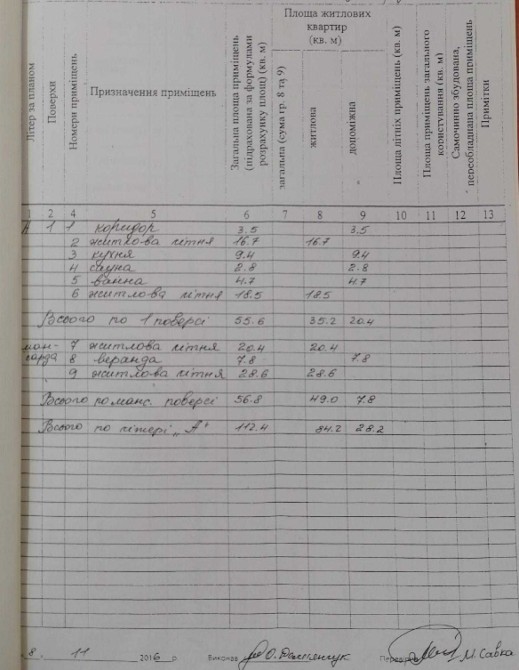 Літер за планом
Поверхи
Номери приміщень
Призначення приміщень
Загальна площа приміщень (підрахована за формулами розрахунку площ) (кв. м)
Площа житлових квартир (кв. м)
загальна (сума гр. 8 та 9)
житлова
допоміжна
Площа літніх приміщень (кв. м)
Площа приміщень загального користування (кв. м)
Самочинно збудована, переобладнана площа приміщень
Примітки
1 2 4 5 6 7 8 9 10 11 12 13
А 1 1 коридор 3.5 3.5
2 житлова літня 16.7 16.7
3 кухня 9.4 9.4
4 сауна 2.8 2.8
5 ванна 4.7 4.7
6 житлова літня 18.5 18.5
Всього по 1 поверсі 55.6 35.2 20.4
ман- 7 житлова літня 20.4 20.4
сарда 8 веранда 7.8 7.8
9 житлова літня 28.6 28.6
Всього по манс. поверсі 56.8 49.0 7.8
Всього по літері „А" 112.4 84.2 28.2
8. 11 2016 р Виконав Перевірив М. Савка